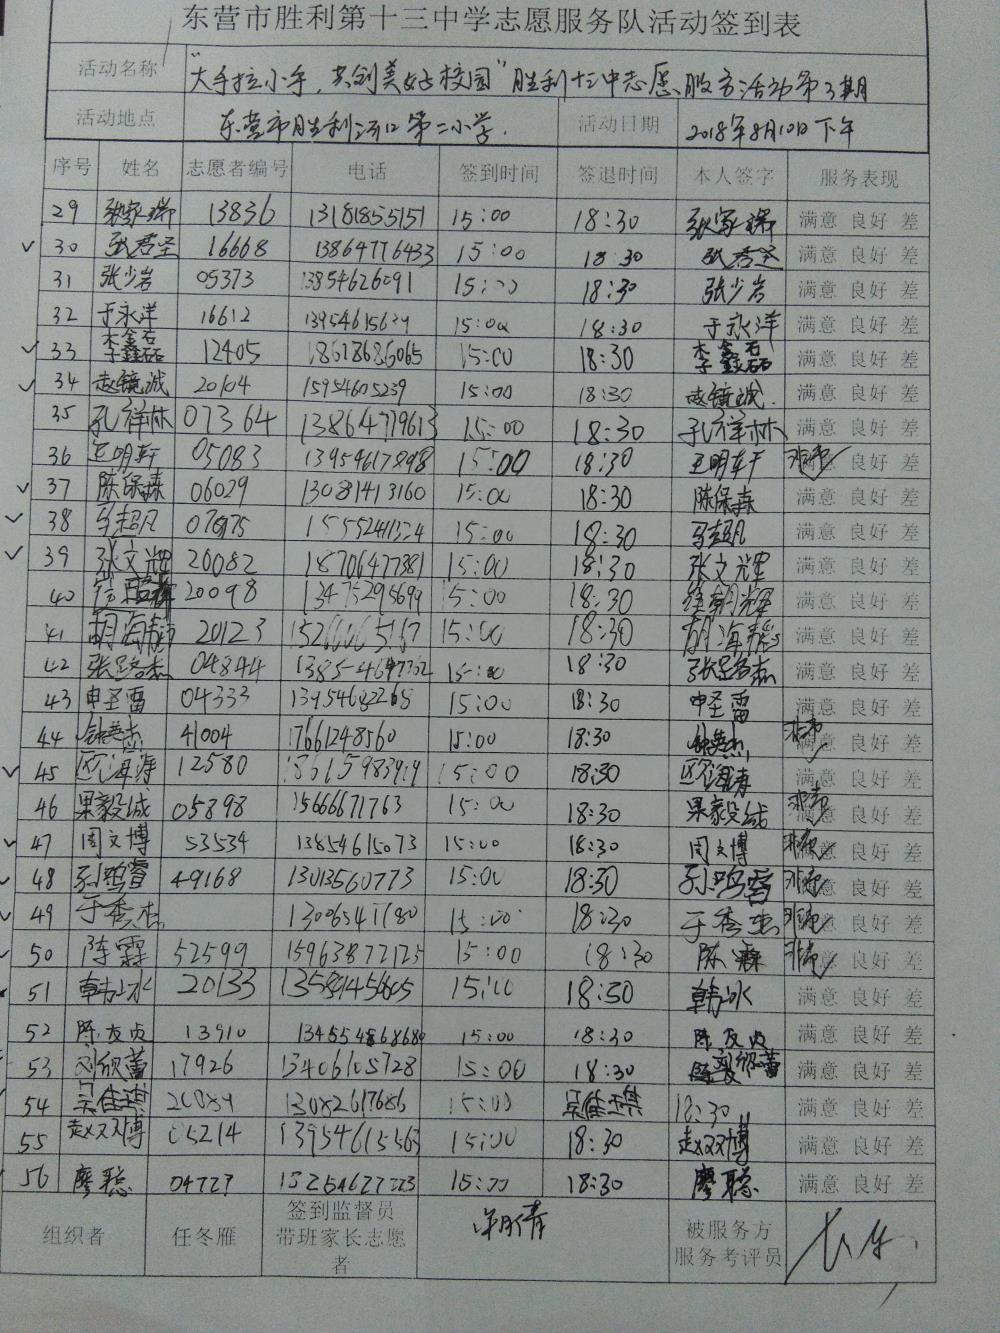 东营市胜利第十三中学志愿服务队活动签到表
活动名称 “大手拉小手，共创美好校园”胜利十三中志愿服务活动第3期
活动地点 东营市胜利河口第二小学. 活动日期 2018年8月10日下午
序号 姓名 志愿者编号 电话 签到时间 签退时间 本人签字 服务表现
29 张家瑞 13836 13181855151 15:00 18:30 张家瑞 满意 良好 差
30 张君圣 16668 13864776433 15:00 18:30 张君圣 满意 良好 差
31 张少岩 05373 13854626091 15:00 18:30 张少岩 满意 良好 差
32 于永洋 16612 15:00 18:30 于永洋 满意 良好 差
33 李鑫磊 12405 18678686065 15:00 18:30 李鑫磊 满意 良好 差
34 赵镜诚 20104 15954605239 15:00 18:30 赵镜诚. 满意 良好 差
35 孔祥林 07364 13864779613 15:00 18:30 孔祥林 满意 良好 差
36 王明轩 05083 13954617898 15:00 18:30 王明轩 满意 良好 差
37 陈保森 06029 13081413160 15:00 18:30 陈保森 满意 良好 差
38 马超凡 15:00 18:30 马超凡 满意 良好 差
39 张文辉 20082 18706477381 15:00 18:30 张文辉 满意 良好 差
40 20098 13475296699 15:00 18:30 满意 良好 差
41 胡海静 20123 15:00 18:30 胡海静 满意 良好 差
42 张路杰 04844 15:00 18:30 张路杰 满意 良好 差
43 申圣雷 04333 13954682268 15:00 18:30 申圣雷 满意 良好 差
44 41004 17661248560 15:00 18:30 满意 良好 差
45 区海涛 12580 18615983919 15:00 18:30 区海涛 满意 良好 差
46 果毅诚 05898 15666671763 15:00 18:30 果毅诚 满意 良好 差
47 周文博 53534 13854615073 15:00 18:30 周文博 满意 良好 差
48 孙鸿睿 49168 13013560773 15:00 18:30 孙鸿睿 满意 良好 差
49 于秀杰 15:00 18:30 于秀杰 满意 良好 差
50 陈霖 52599 15963872125 15:00 18:30 陈霖 满意 良好 差
51 韩冰 20133 13589945605 15:00 18:30 韩冰 满意 良好 差
52 陈友贞 13910 15:00 18:30 陈友贞 满意 良好 差
53 刘欣蕾 17926 13406105728 15:00 18:30 刘欣蕾 满意 良好 差
54 吴佳琪 20089 13082617686 15:00 吴佳琪 18:30 满意 良好 差
55 赵双博 05214 13954615563 15:00 18:30 赵双博 满意 良好 差
56 廖聪 04727 15254627223 15:00 18:30 廖聪 满意 良好 差
组织者 任冬雁 签到监督员
带班家长志愿
者
被服务方
服务考评员